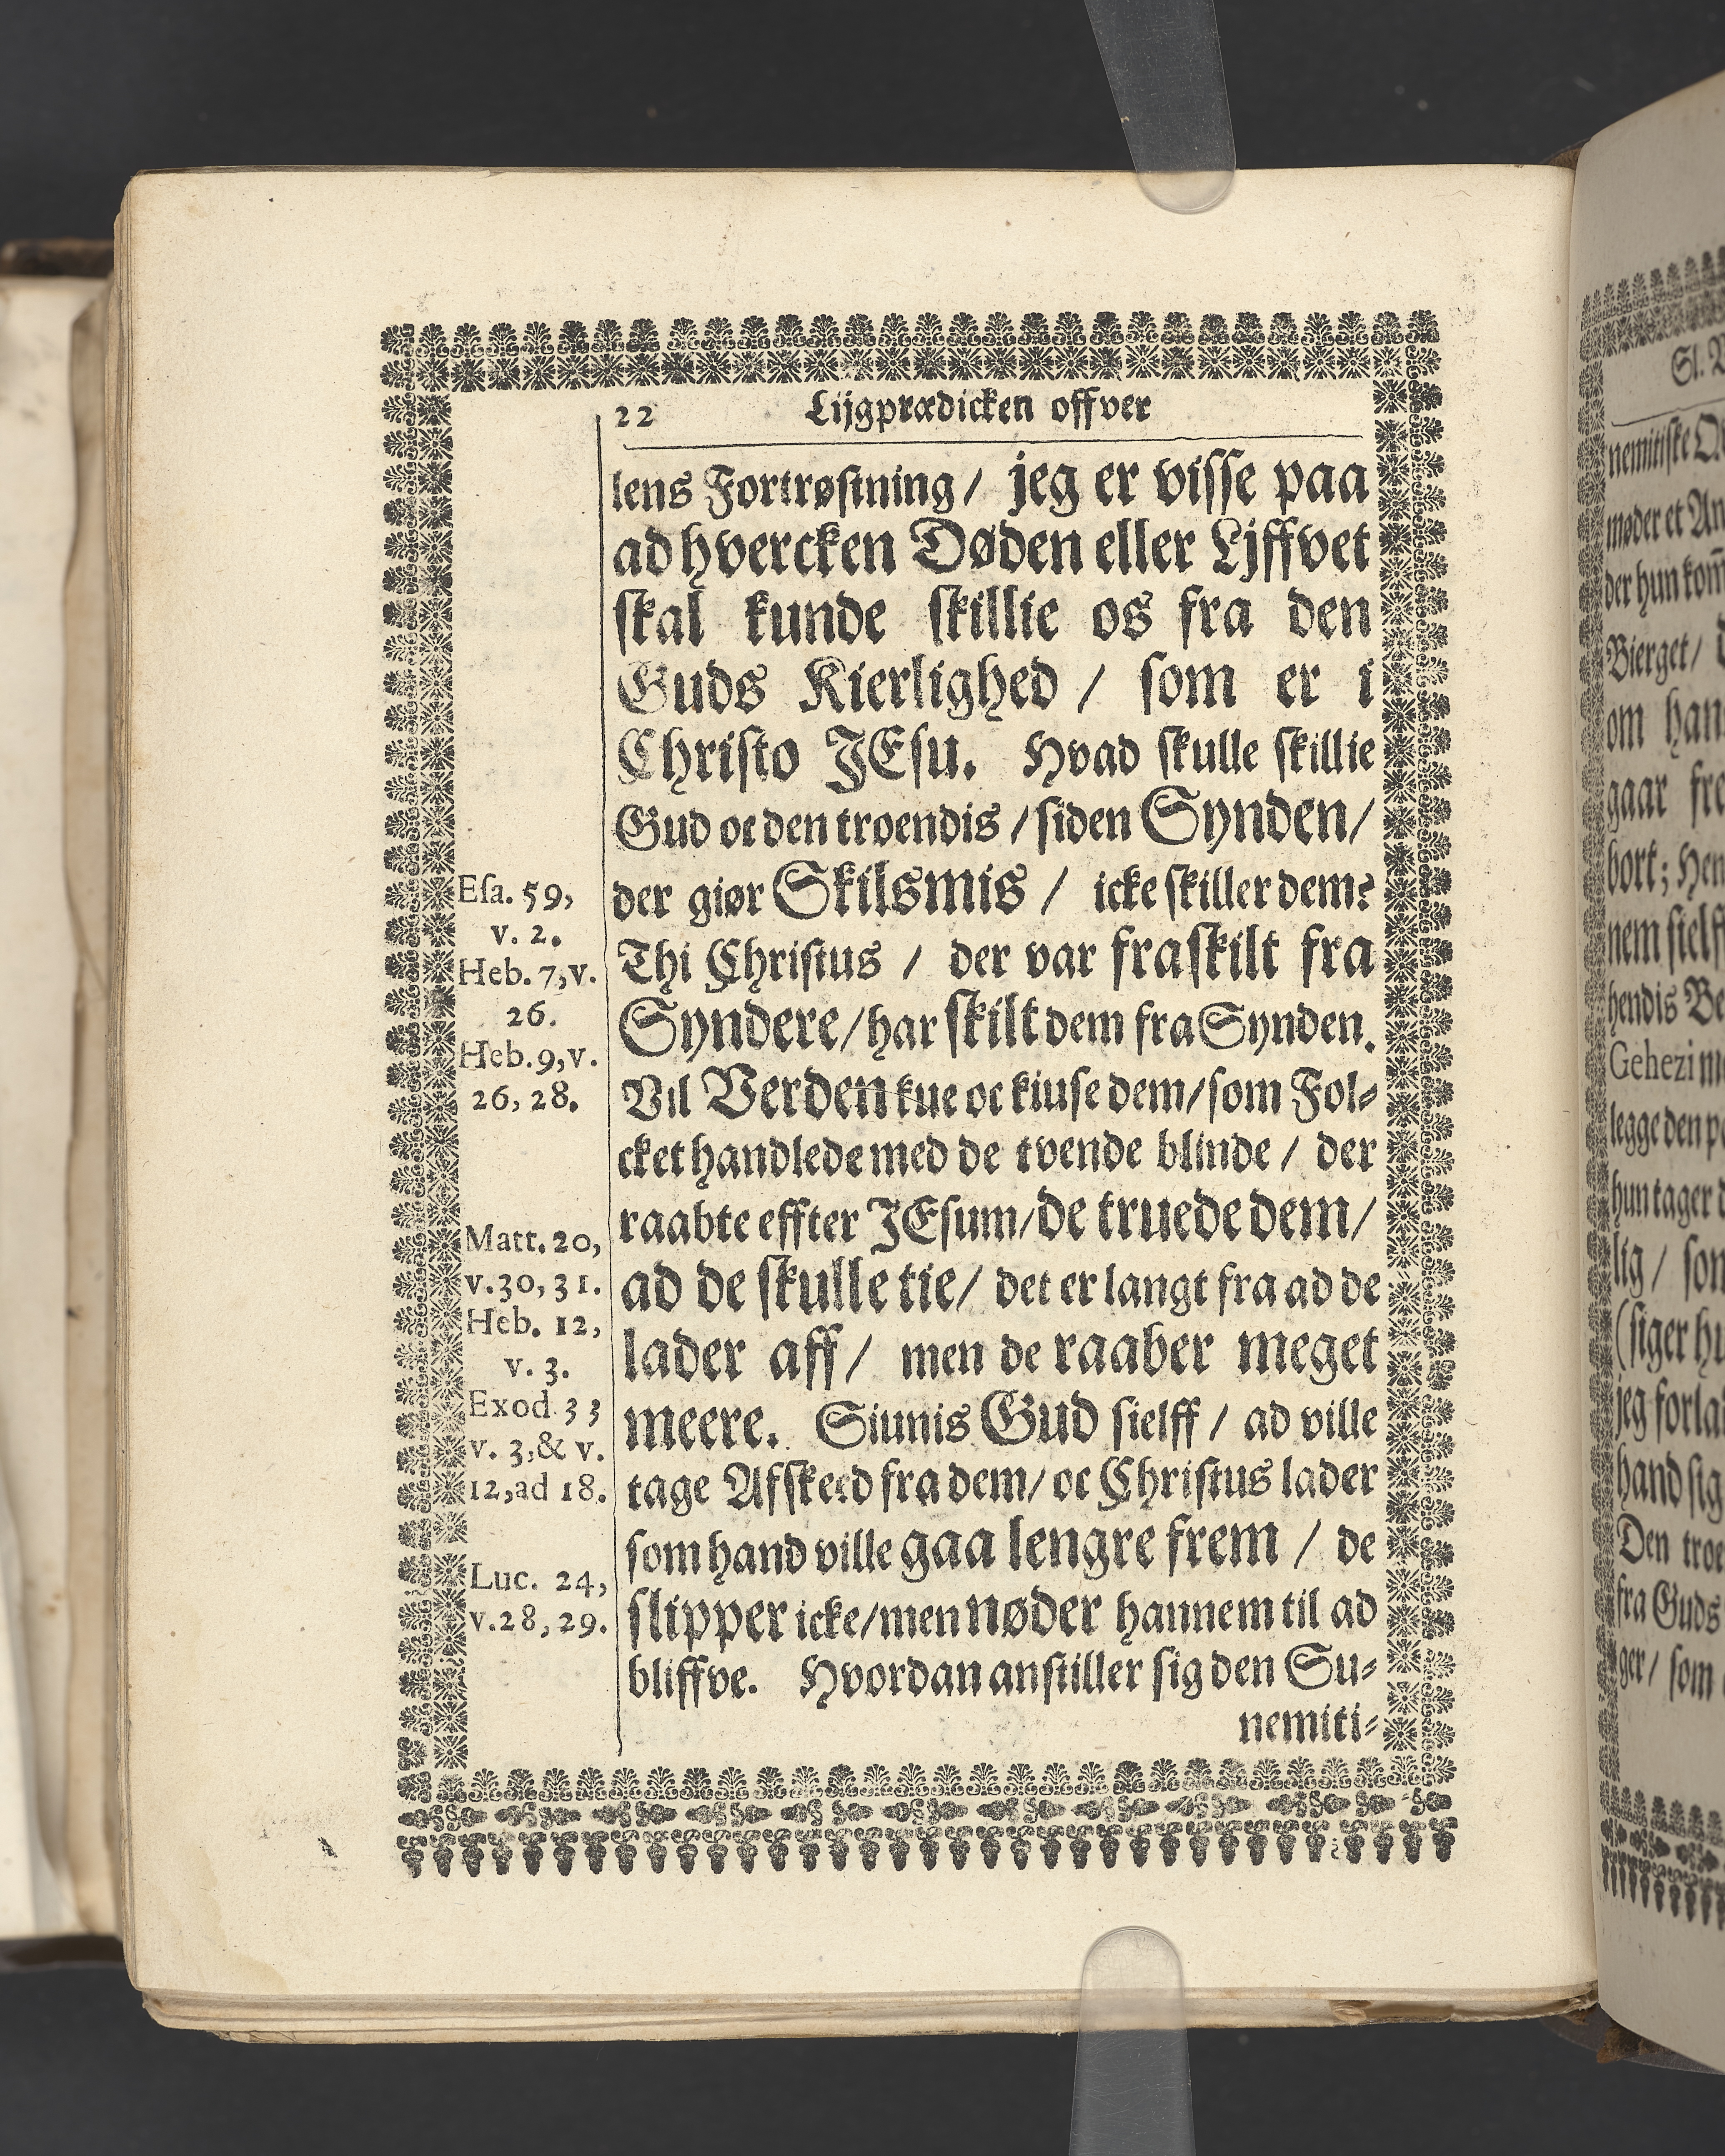 22 Lijgprædicken offver
lens Fortrøstning / jeg er visse paa
ad hvercken Døden eller Ljffvet
skal kunde skillie os fra den
Guds Kierlighed / som er i
Christo JEsu. Hvad skulle skillie
Gud oc den troendis / siden Synden /
der giør Skilsmis / icke skiller dem?
Thi Christus / der var fraskilt fra
Syndere / har skilt dem fra Synden.
Vil Verden kue oc kiuse dem / som Fol-
cket handlede med de tvende blinde / der
raabte effter JEsum / de truede dem /
ad de skulle tie / det er langt fra ad de
lader aff / men de raaber meget
meere. Siunis Gud sielff / ad ville
tage Afskeed fra dem / oc Christus lader
som hand ville gaa lengre frem / de
slipper icke / men nøder hannem til ad
bliffve. Hvordan anstiller sig den Su-
nemiti-
Esa. 59,
v. 2.
Heb. 7, v.
26.
Heb. 9, v.
26, 28.
Matt. 20,
v. 30, 31.
Heb. 12,
v. 3.
Exod 33
v. 3, & v.
12, ad 18.
Luc. 24,
v. 28, 29.
nemitiske
møder et
der hun
Bierget /
om
gaar
bort;
nem sielf
hendis
Gehezi
legge den
hun tager
lig /
(siger
jeg
hand
Den
fra Guds
ger / som